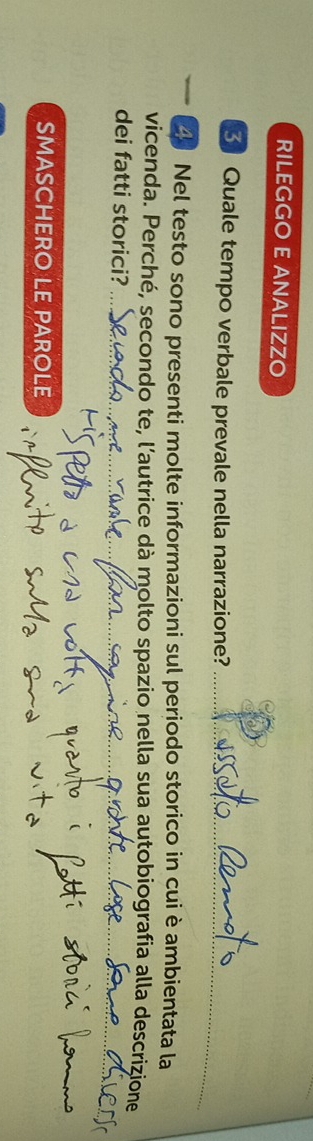 RILEGGO E ANALIZZO
3 Quale tempo verbale prevale nella narrazione? Passato Remoto
4 Nel testo sono presenti molte informazioni sul periodo storico in cui è ambientata la
vicenda. Perché, secondo te, l'autrice dà molto spazio nella sua autobiografia alla descrizione
dei fatti storici? Secondo me vuole far capire quante cose sono diverse
rispetto a una volta, quanto i fatti storici hanno
influito sulla sua vita
SMASCHERO LE PAROLE